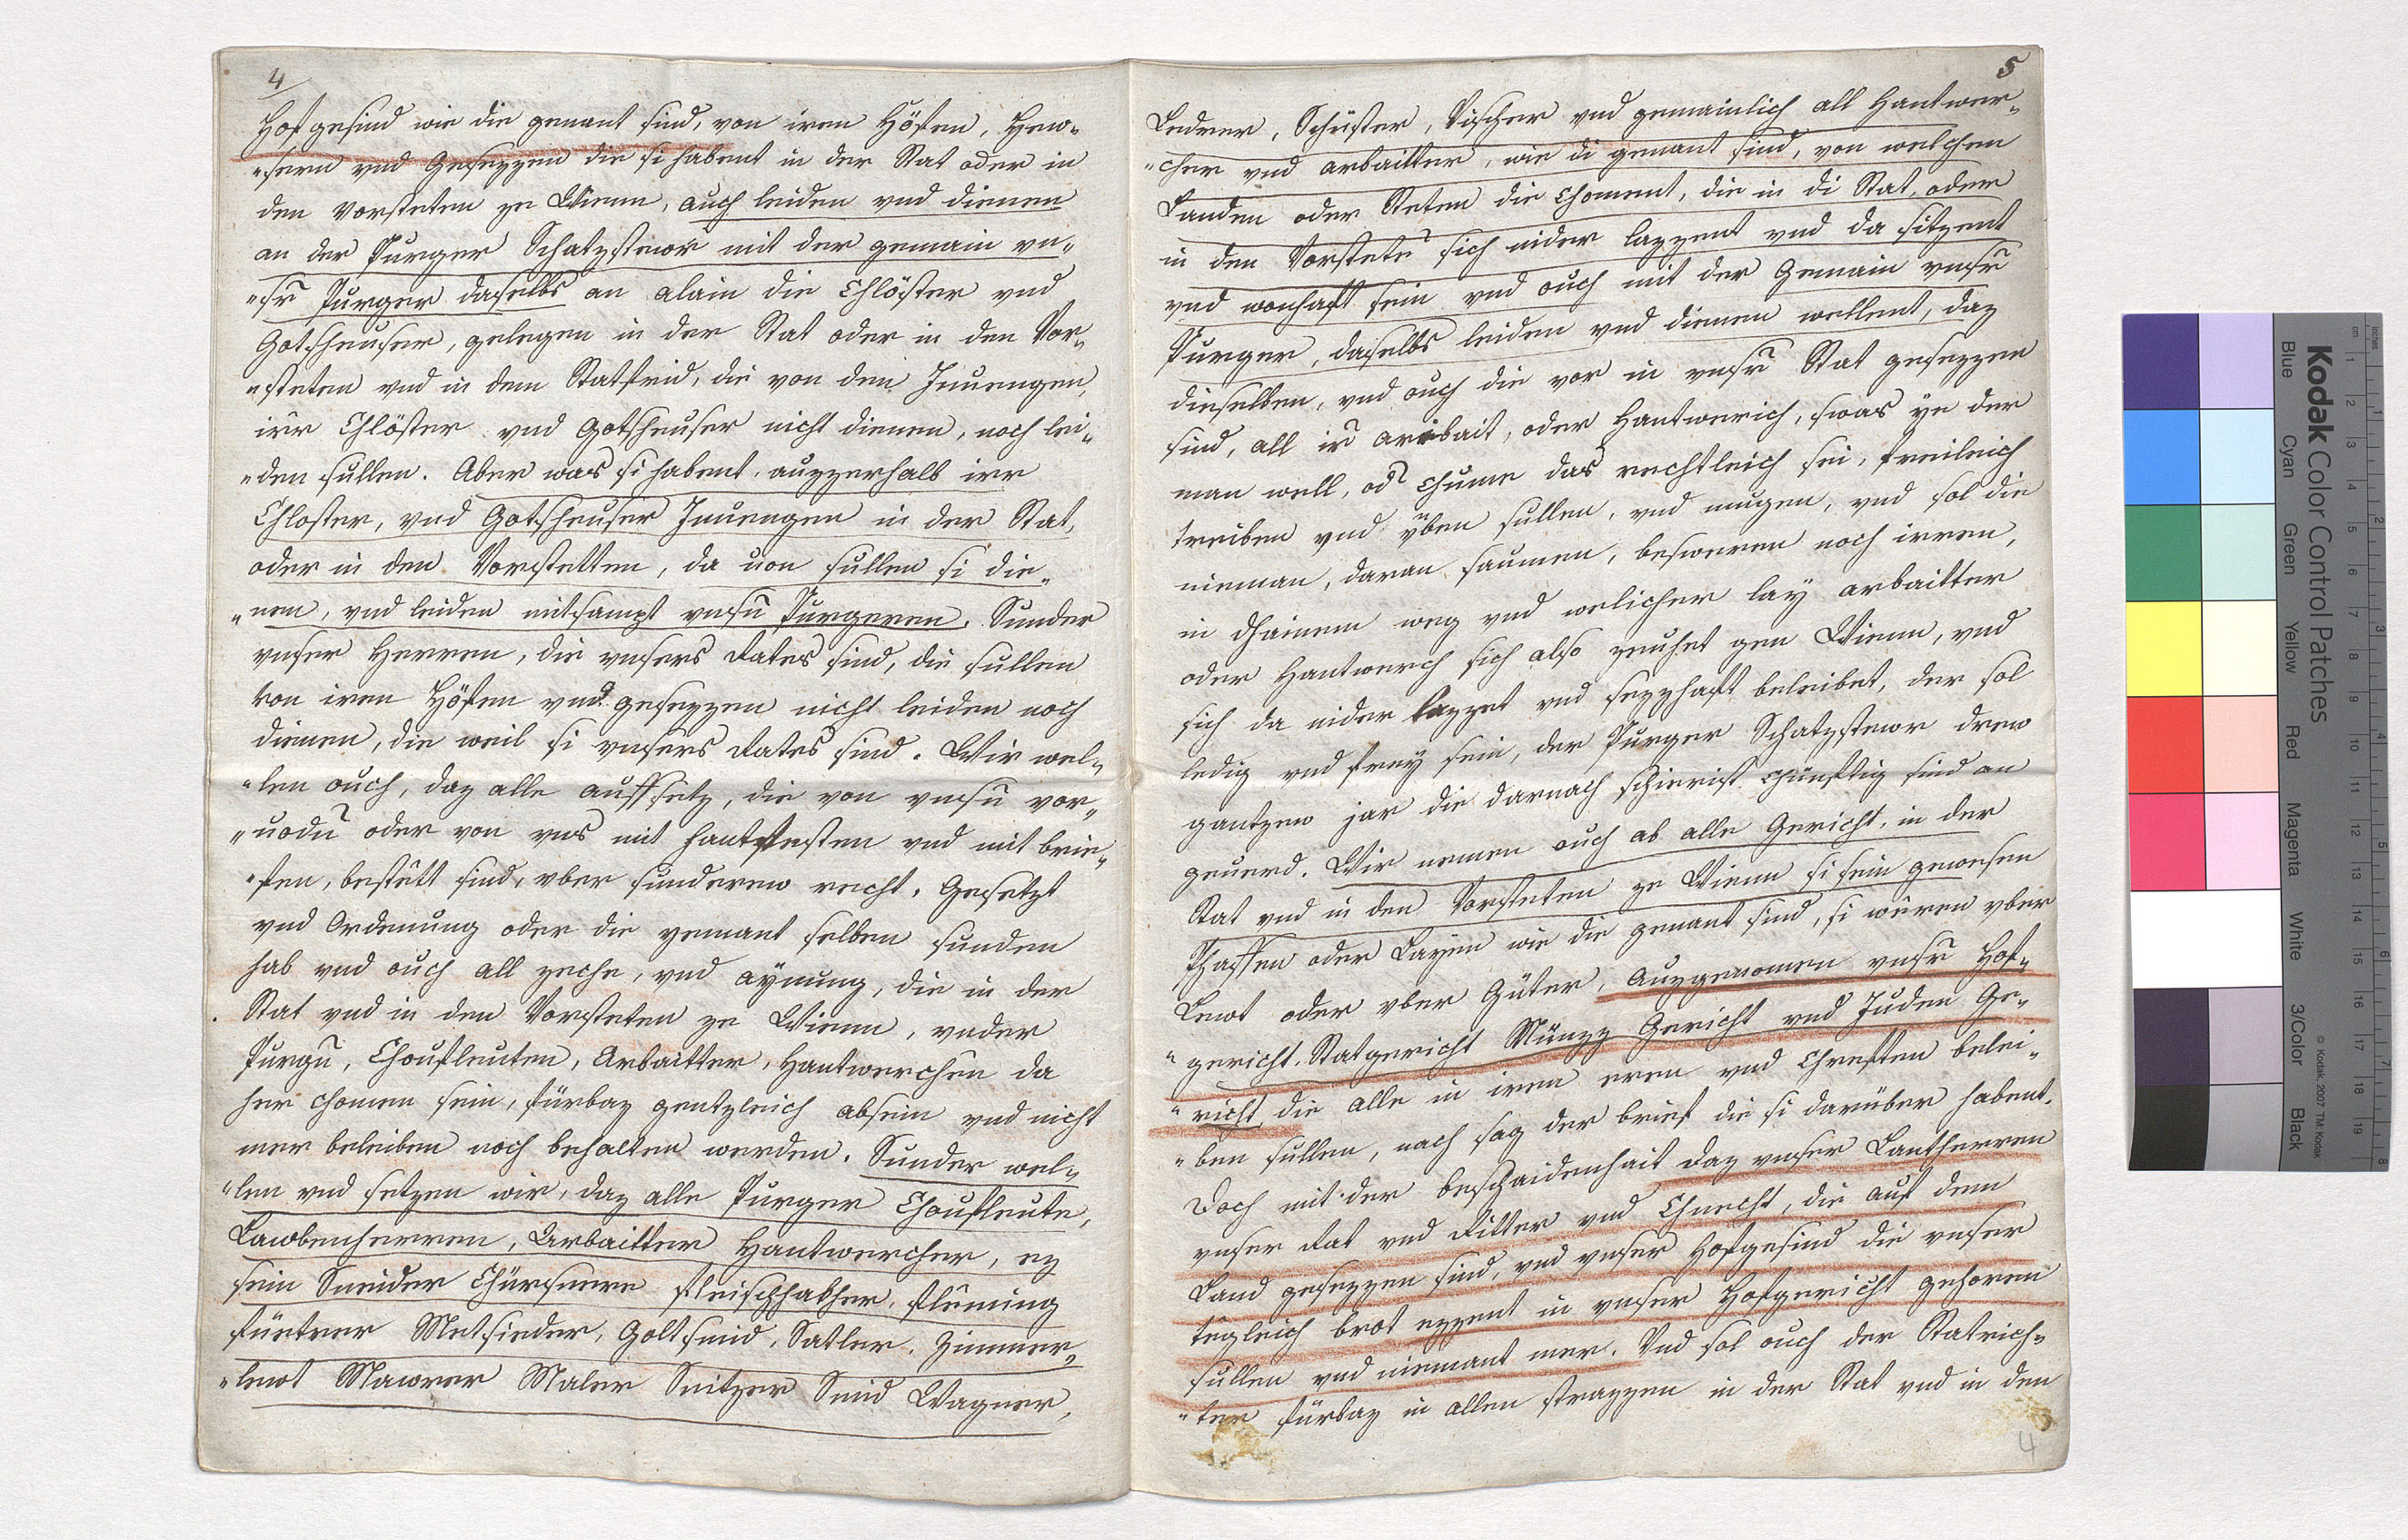 4
Hofgesind wie die genant sind, von iren Höfen, Hew-
"sern vnd Gesezzen die si habent in der Stat oder in
den Vorsteten ze Wienn, auch leiden vnd dienen
an der Purger Schatzstewr mit der gemain vn-
"sr̄ Purger daselbs an alain die Chlöster vnd
Gotsheuser, gelegen in der Stat oder in den Vor-
"steten vnd in dem Statfrid, die von den Inuengen,
irr Chlöster vnd Gotsheuser nicht dienen, noch lei-
"den sullen. Aber was si habent, auzzerhalb irr
Chloster, vnd Gotsheuser Inuengen in der Stat,
oder in den Vorstetten, da uon sullen si die-
"nen, vnd leiden mitsampt vnsn̄ Purgeren. Sunder
vnser Herren, die vnsers Rates sind, die sullen
von iren Höfen vnd gesezzen nicht leiden noch
dienen, die weil si vnsers Rates sind. Wir wel-
"len ouch, daz alle auffsetz, die von vnsn̄ vor-
"uodn̄ oder von vns mit hantfesten vnd mit brie-
"fen, bestêtt sind, vber sunderew recht, Gesetzt
vnd Ordenung oder die yemant selben funden
hab vnd ouch all zeche, vnd aÿnung, die in der
Stat vnd in den Vorsteten ze Wienn, vnder
Purgn̄, Choufleuten, Arbaitter, Hantwerchen da
her chomen sein, fürbaz gentzleich absein vnd nicht
mer beleiben noch behalten werden. Sunder wel-
"len vnd setzen wir, daz alle Purger Choufleute,
Lawbenherren, Arbaitter Hantwercher, ez
sein Sneider Chürsnere fleischhakher, flêming
fürtrer Metsieder, Goltsmid, Satler, Zimmer-
"lewt Mawrer Maler Snitzer Smid Wagner,
5
Ledrer, Schüster, Vischer vnd gemainlich all Hantwer-
"cher vnd arbaitter, wie di genant sind, von welchen
Landen oder Steten die Choment, die in di Stat, oder
in den Vorstetn̄ sich nider lazzent vnd da sitzent
vnd wonhaft sein vnd ouch mit der Gemain vnsr̄
Purger, daselbs leiden vnd dienen wellent, daz
dieselben, vnd ouch die vor in vnsr̄ Stat gesezzen
sind, all ir aribait, oder Hantwerich, swas ÿe der
man well, od̄ chunne das rechtleich sei, freileich
treiben vnd ÿben sullen, vnd mugen, vnd sol die
nieman, daran saumen, besweren noch irren,
in dhainem weg vnd welicher lay arbaitter
oder Hantwerch sich also zeuhet gen Wienn, vnd
sich da nider lazzet vnd sezzhaft beleibet, der sol
ledig vnd freÿ sein, der Purger Schatzstewr drew
gantzew jar die darnach schierist chünftig sind an
geuerd. Wir nemen ouch ab alle Gericht, in der
Stat vnd in den Vorsteten ze Wienn si sein gewesen
Phaffen oder Layen wie die genant sind, si wêren vber
Lewt oder vber Güter, Auzgenomen vnsr̄ Hof-
"gericht, Statgericht Münzz Gericht vnd Juden Ge-
"richt, die alle in iren eren vnd Chreften belei-
"ben sullen, nach sag der brief die si darüber habent.
Doch mit der beschaidenhait daz vnser Lantherren
vnser Rat vnd Ritter vnd Chnecht, die auf dem
Land gesezzen sind, vnd vnser Hofgesind die vnser
têgleich brot ezzent in vnser Hofgericht gehoren
sullen vnd niemant mer. Vnd sol ouch der Statrich-
"ter fürbaz in allen strazzen in der Stat vnd in den
4
Kodak Color Control Patches
Blue
Cyan
Green
Yellow
Red
Magenta
White
3/Color
Black
© Kodak, 2007 TM: Kodak
cm 1 2 3 4 5 6 7 8 9 10 11 12 13 14 15 16 17 18 19
inches 1 2 3 4 5 6 7 8